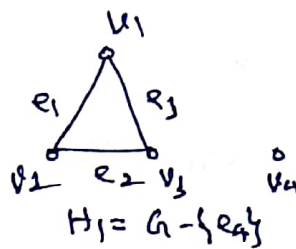 v1
e1 e3
v2 e2 v3 v4
H1 = G - {e4}